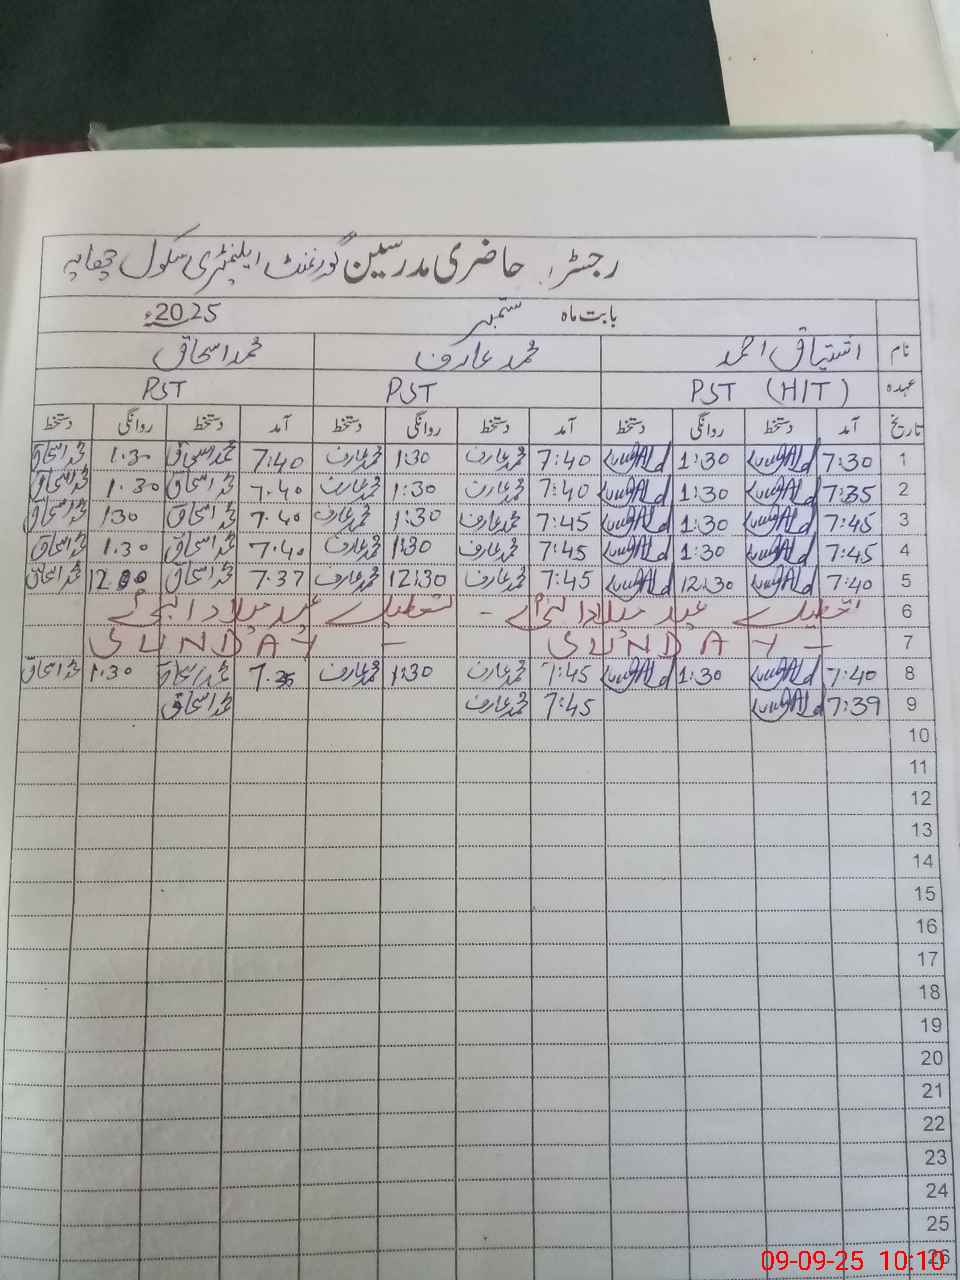 رجسٹر حاضری مدرسین گورنمنٹ ایلیمنٹری سکول چھاپہ
بابت ماہ ستمبر 2025ء
نام اشتیاق احمد محمد عارف محمد اسحاق
عہدہ PST (H/T) PST PST
تاریخ آمد دستخط روانگی دستخط آمد دستخط روانگی دستخط آمد دستخط روانگی دستخط
1 7:30 1:30 7:40 محمد عارف 1:30 محمد عارف 7:40 محمد اسحاق 1.30 محمد اسحاق
2 7:35 1:30 7:40 محمد عارف 1:30 محمد عارف 7.40 محمد اسحاق 1.30 محمد اسحاق
3 7:45 1:30 7:45 محمد عارف 1:30 محمد عارف 7.40 محمد اسحاق 130 محمد اسحاق
4 7:45 1:30 7:45 محمد عارف 1:30 محمد عارف 7.40 محمد اسحاق 1.30 محمد اسحاق
5 7:40 12:30 7:45 محمد عارف 12:30 محمد عارف 7.37 محمد اسحاق محمد اسحاق
6 تعطیل عید میلاد النبیؐ - تعطیل عید میلاد النبیؐ
7 - SUNDAY - SUNDAY
8 7:40 1:30 7:45 محمد عارف 1:30 محمد عارف 7.35 محمد اسحاق 1.30 محمد اسحاق
9 7:39 7:45 محمد عارف محمد اسحاق
10
11
12
13
14
15
16
17
18
19
20
21
22
23
24
25
26
09-09-25 10:10